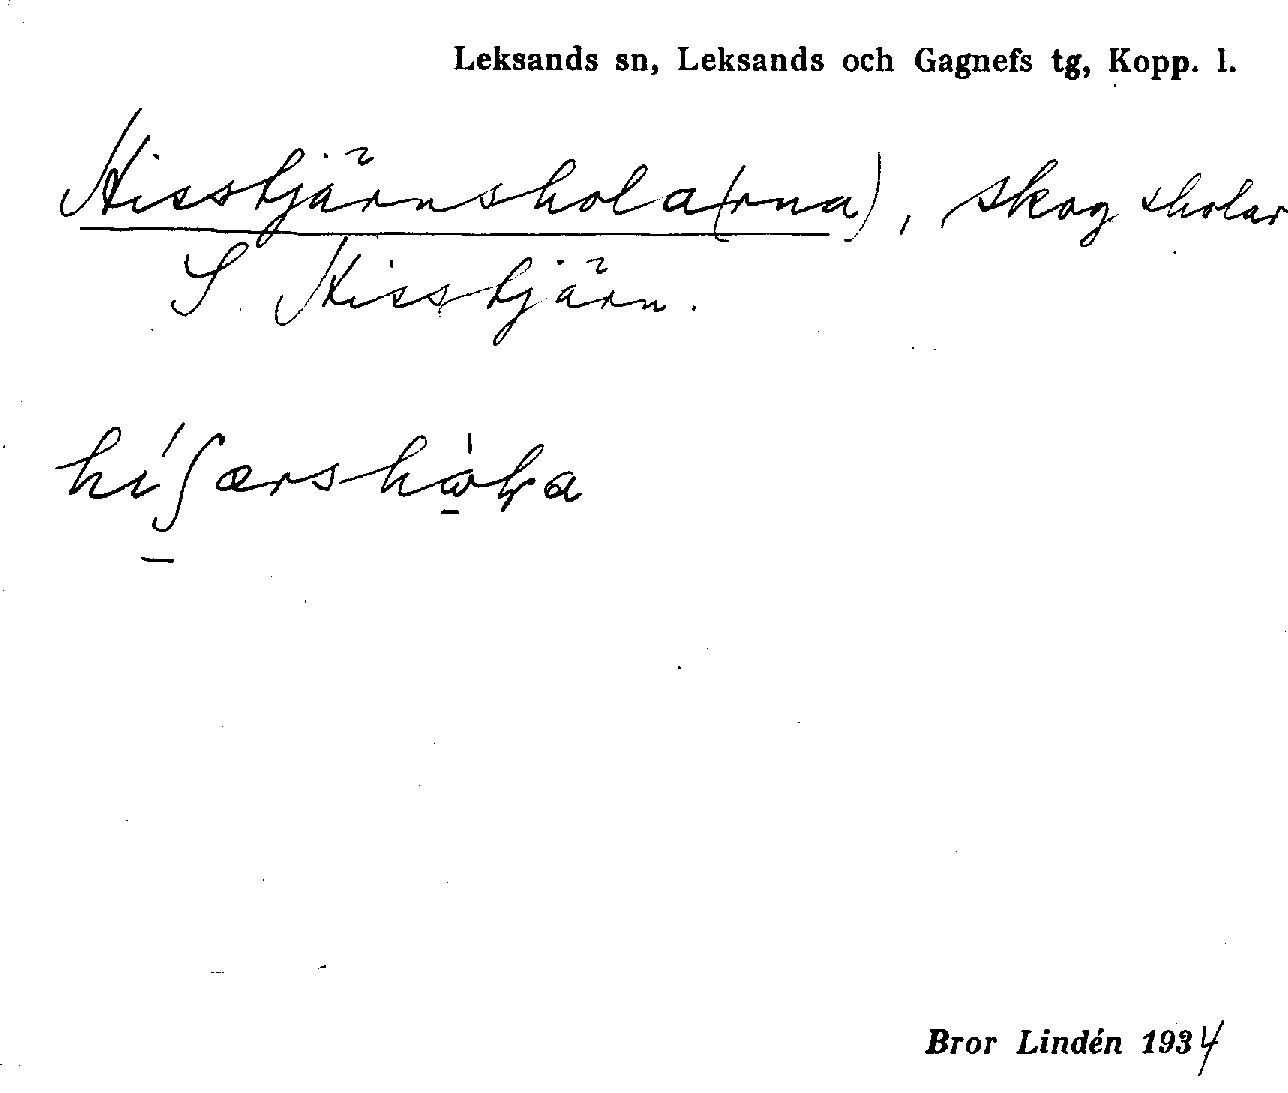 Leksands sn, Leksands och Gagnefs tg, Kopp. l.
Hisstjärnshola(rna), skogsholar
S Hisstjärn.
Bror Lindén 1934